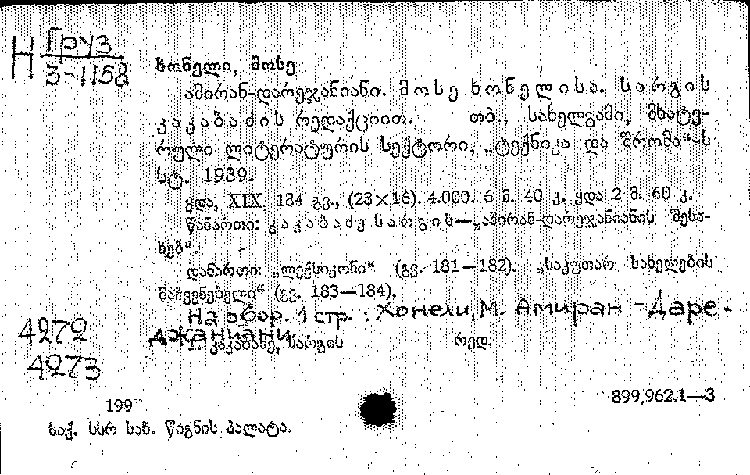 Н Груз
3-1158
ხონელი, მოსე
ამირან-დარეჯანიანი. მოსე ხონელისა. სარგის
კაკაბაძის რედაქციით. თბ., სახელგამი, მხატვ-
რული ლიტერატურის სექტორი, „ტექნიკა და შრომა“-ს
სტ. 1939.
ყდა, XIX. 184 გვ., (23×16). 4.000. 6 მ. 40 კ. ყდა 2 მ. 60 კ.
წანართი: კაკაბაძე სარგის—„ამირან-დარეჯანიანის შესა-
ხებ“.
დანართი: „ლექსიკონი“ (გვ. 181—182). „საკუთარ სახელების
მაჩვენებელი“ (გვ. 183—184).
На обор. 1 стр.: Хонели, М. Амиран-Даре-
джаниани
1. კაკაბაძე, სარგის რედ.
4272
4273
899.962.1—3
199
საქ. სსრ სახ. წიგნის პალატა.